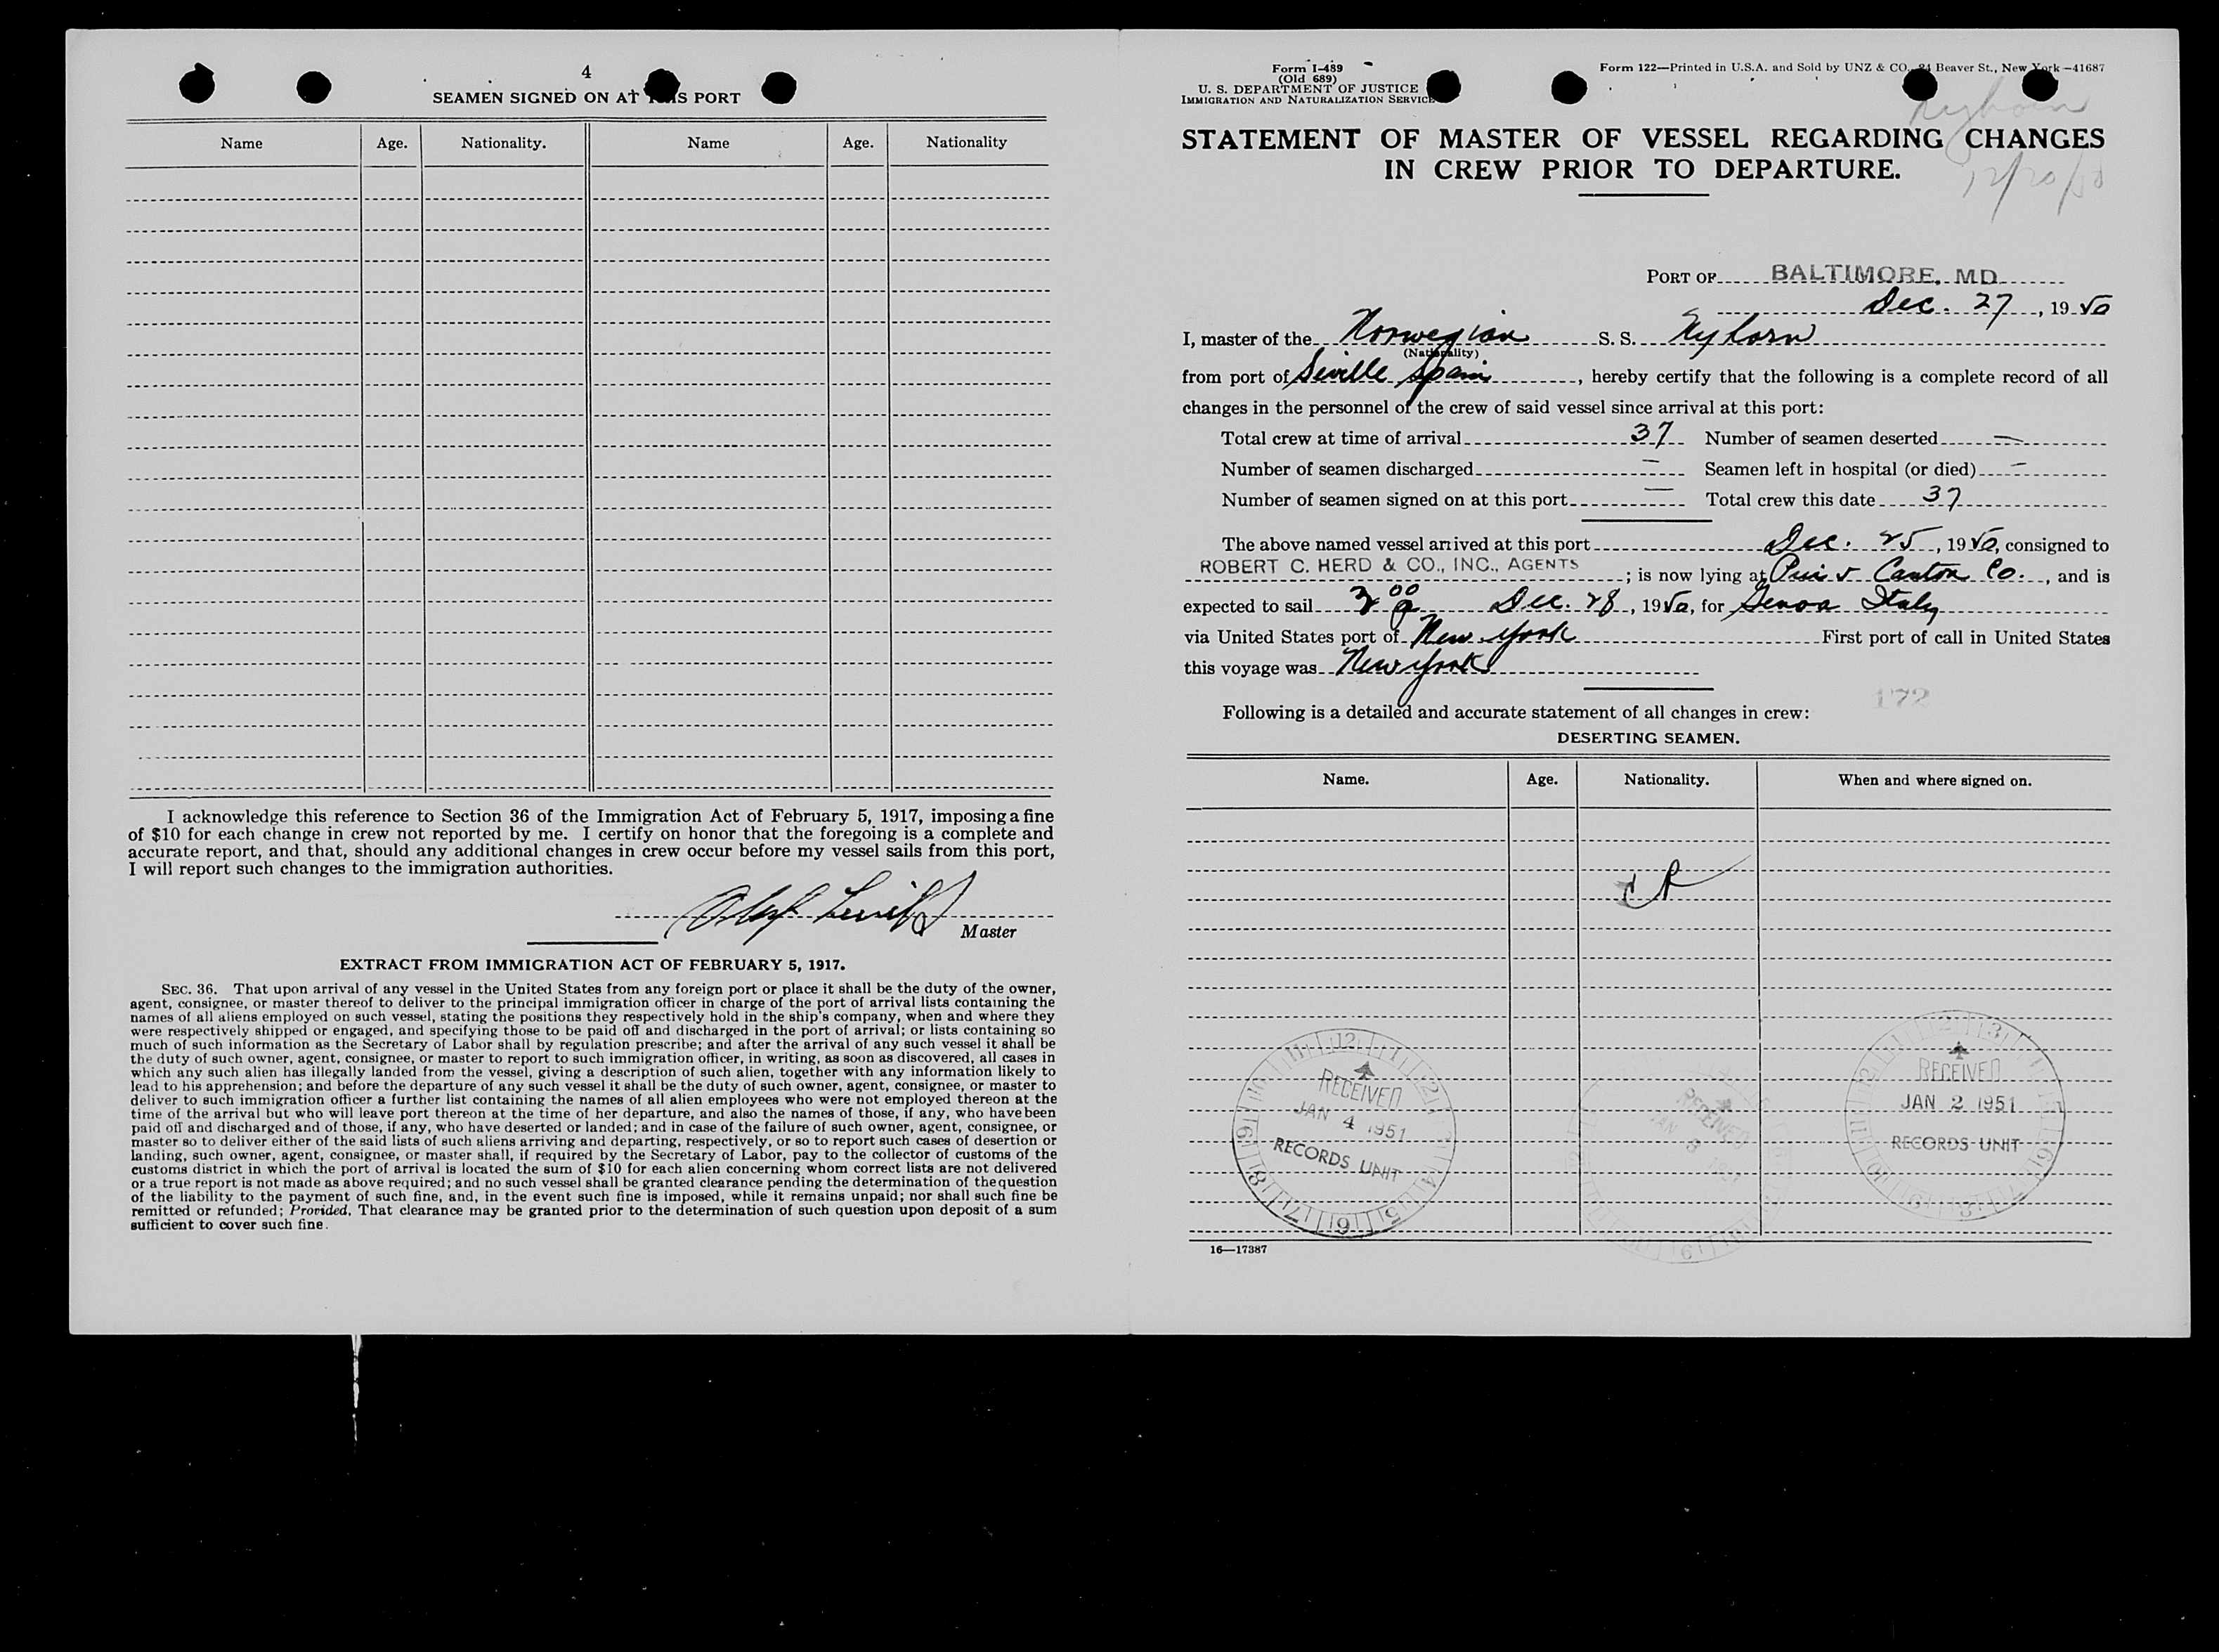 4
SEAMEN SIGNED ON AT THIS PORT
Name Age. Nationality. Name Age. Nationality
I acknowledge this reference to Section 36 of the Immigration Act of February 5, 1917, imposing a fine
of $10 for each change in crew not reported by me. I certify on honor that the foregoing is a complete and
accurate report, and that, should any additional changes in crew occur before my vessel sails from this port,
I will report such changes to the immigration authorities.
Master
EXTRACT FROM IMMIGRATION ACT OF FEBRUARY 5, 1917.
SEC. 36. That upon arrival of any vessel in the United States from any foreign port or place it shall be the duty of the owner,
agent, consignee, or master thereof to deliver to the principal immigration officer in charge of the port of arrival lists containing the
names of all aliens employed on such vessel, stating the positions they respectively hold in the ship's company, when and where they
were respectively shipped or engaged, and specifying those to be paid off and discharged in the port of arrival; or lists containing so
much of such information as the Secretary of Labor shall by regulation prescribe; and after the arrival of any such vessel it shall be
the duty of such owner, agent, consignee, or master to report to such immigration officer, in writing, as soon as discovered, all cases in
which any such alien has illegally landed from the vessel, giving a description of such alien, together with any information likely to
lead to his apprehension; and before the departure of any such vessel it shall be the duty of such owner, agent, consignee, or master to
deliver to such immigration officer a further list containing the names of all alien employees who were not employed thereon at the
time of the arrival but who will leave port thereon at the time of her departure, and also the names of those, if any, who have been
paid off and discharged and of those, if any, who have deserted or landed; and in case of the failure of such owner, agent, consignee, or
master so to deliver either of the said lists of such aliens arriving and departing, respectively, or so to report such cases of desertion or
landing, such owner, agent, consignee, or master shall, if required by the Secretary of Labor, pay to the collector of customs of the
customs district in which the port of arrival is located the sum of $10 for each alien concerning whom correct lists are not delivered
or a true report is not made as above required; and no such vessel shall be granted clearance pending the determination of the question
of the liability to the payment of such fine, and, in the event such fine is imposed, while it remains unpaid; nor shall such fine be
remitted or refunded; Provided, That clearance may be granted prior to the determination of such question upon deposit of a sum
sufficient to cover such fine.
Form I-489
(Old 689)
U. S. DEPARTMENT OF JUSTICE
IMMIGRATION AND NATURALIZATION SERVICE
Form 122—Printed in U.S.A. and Sold by UNZ & CO., 24 Beaver St., New York—41687
Nyhorn
STATEMENT OF MASTER OF VESSEL REGARDING CHANGES
IN CREW PRIOR TO DEPARTURE.
12/20/50
PORT OF BALTIMORE, MD.
Dec. 27, 1950
I, master of the Norwegian S. S. Nyhorn
(Nationality)
from port of Seville Spain, hereby certify that the following is a complete record of all
changes in the personnel of the crew of said vessel since arrival at this port:
Total crew at time of arrival 37 Number of seamen deserted —
Number of seamen discharged — Seamen left in hospital (or died) —
Number of seamen signed on at this port — Total crew this date 37
The above named vessel arrived at this port Dec. 25, 1950, consigned to
ROBERT C. HERD & CO., INC., AGENTS; is now lying at Pier 5 Canton Co., and is
expected to sail Dec. 28, 1950, for Genoa Italy
via United States port of New York First port of call in United States
this voyage was New York
172
Following is a detailed and accurate statement of all changes in crew:
DESERTING SEAMEN.
Name. Age. Nationality. When and where signed on.
RECEIVED
JAN 4 1951
RECORDS UNIT
RECEIVED
JAN 8 1951
RECEIVED
JAN 2 1951
RECORDS UNIT
16—17387